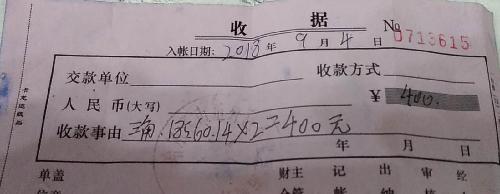 收 据 № 0713615
入帐日期: 2018 年 9 月 4 日
交款单位 收款方式
人民币(大写) ¥ 400.
收款事由 三角.18560.14×2=400元
年 月 日
单盖 财主 记 出 审 经